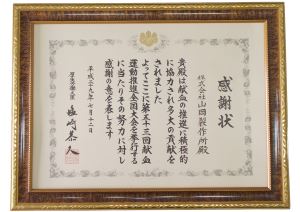 感謝状
株式会社山岡製作所殿
貴殿は献血の推進に積極的
に協力され多大の貢献を
されました
よってここに第五十三回献血
運動推進全国大会を挙行する
に当たりその努力に対し
感謝の意を表します
平成二十九年七月十二日
厚生労働大臣
塩崎恭久